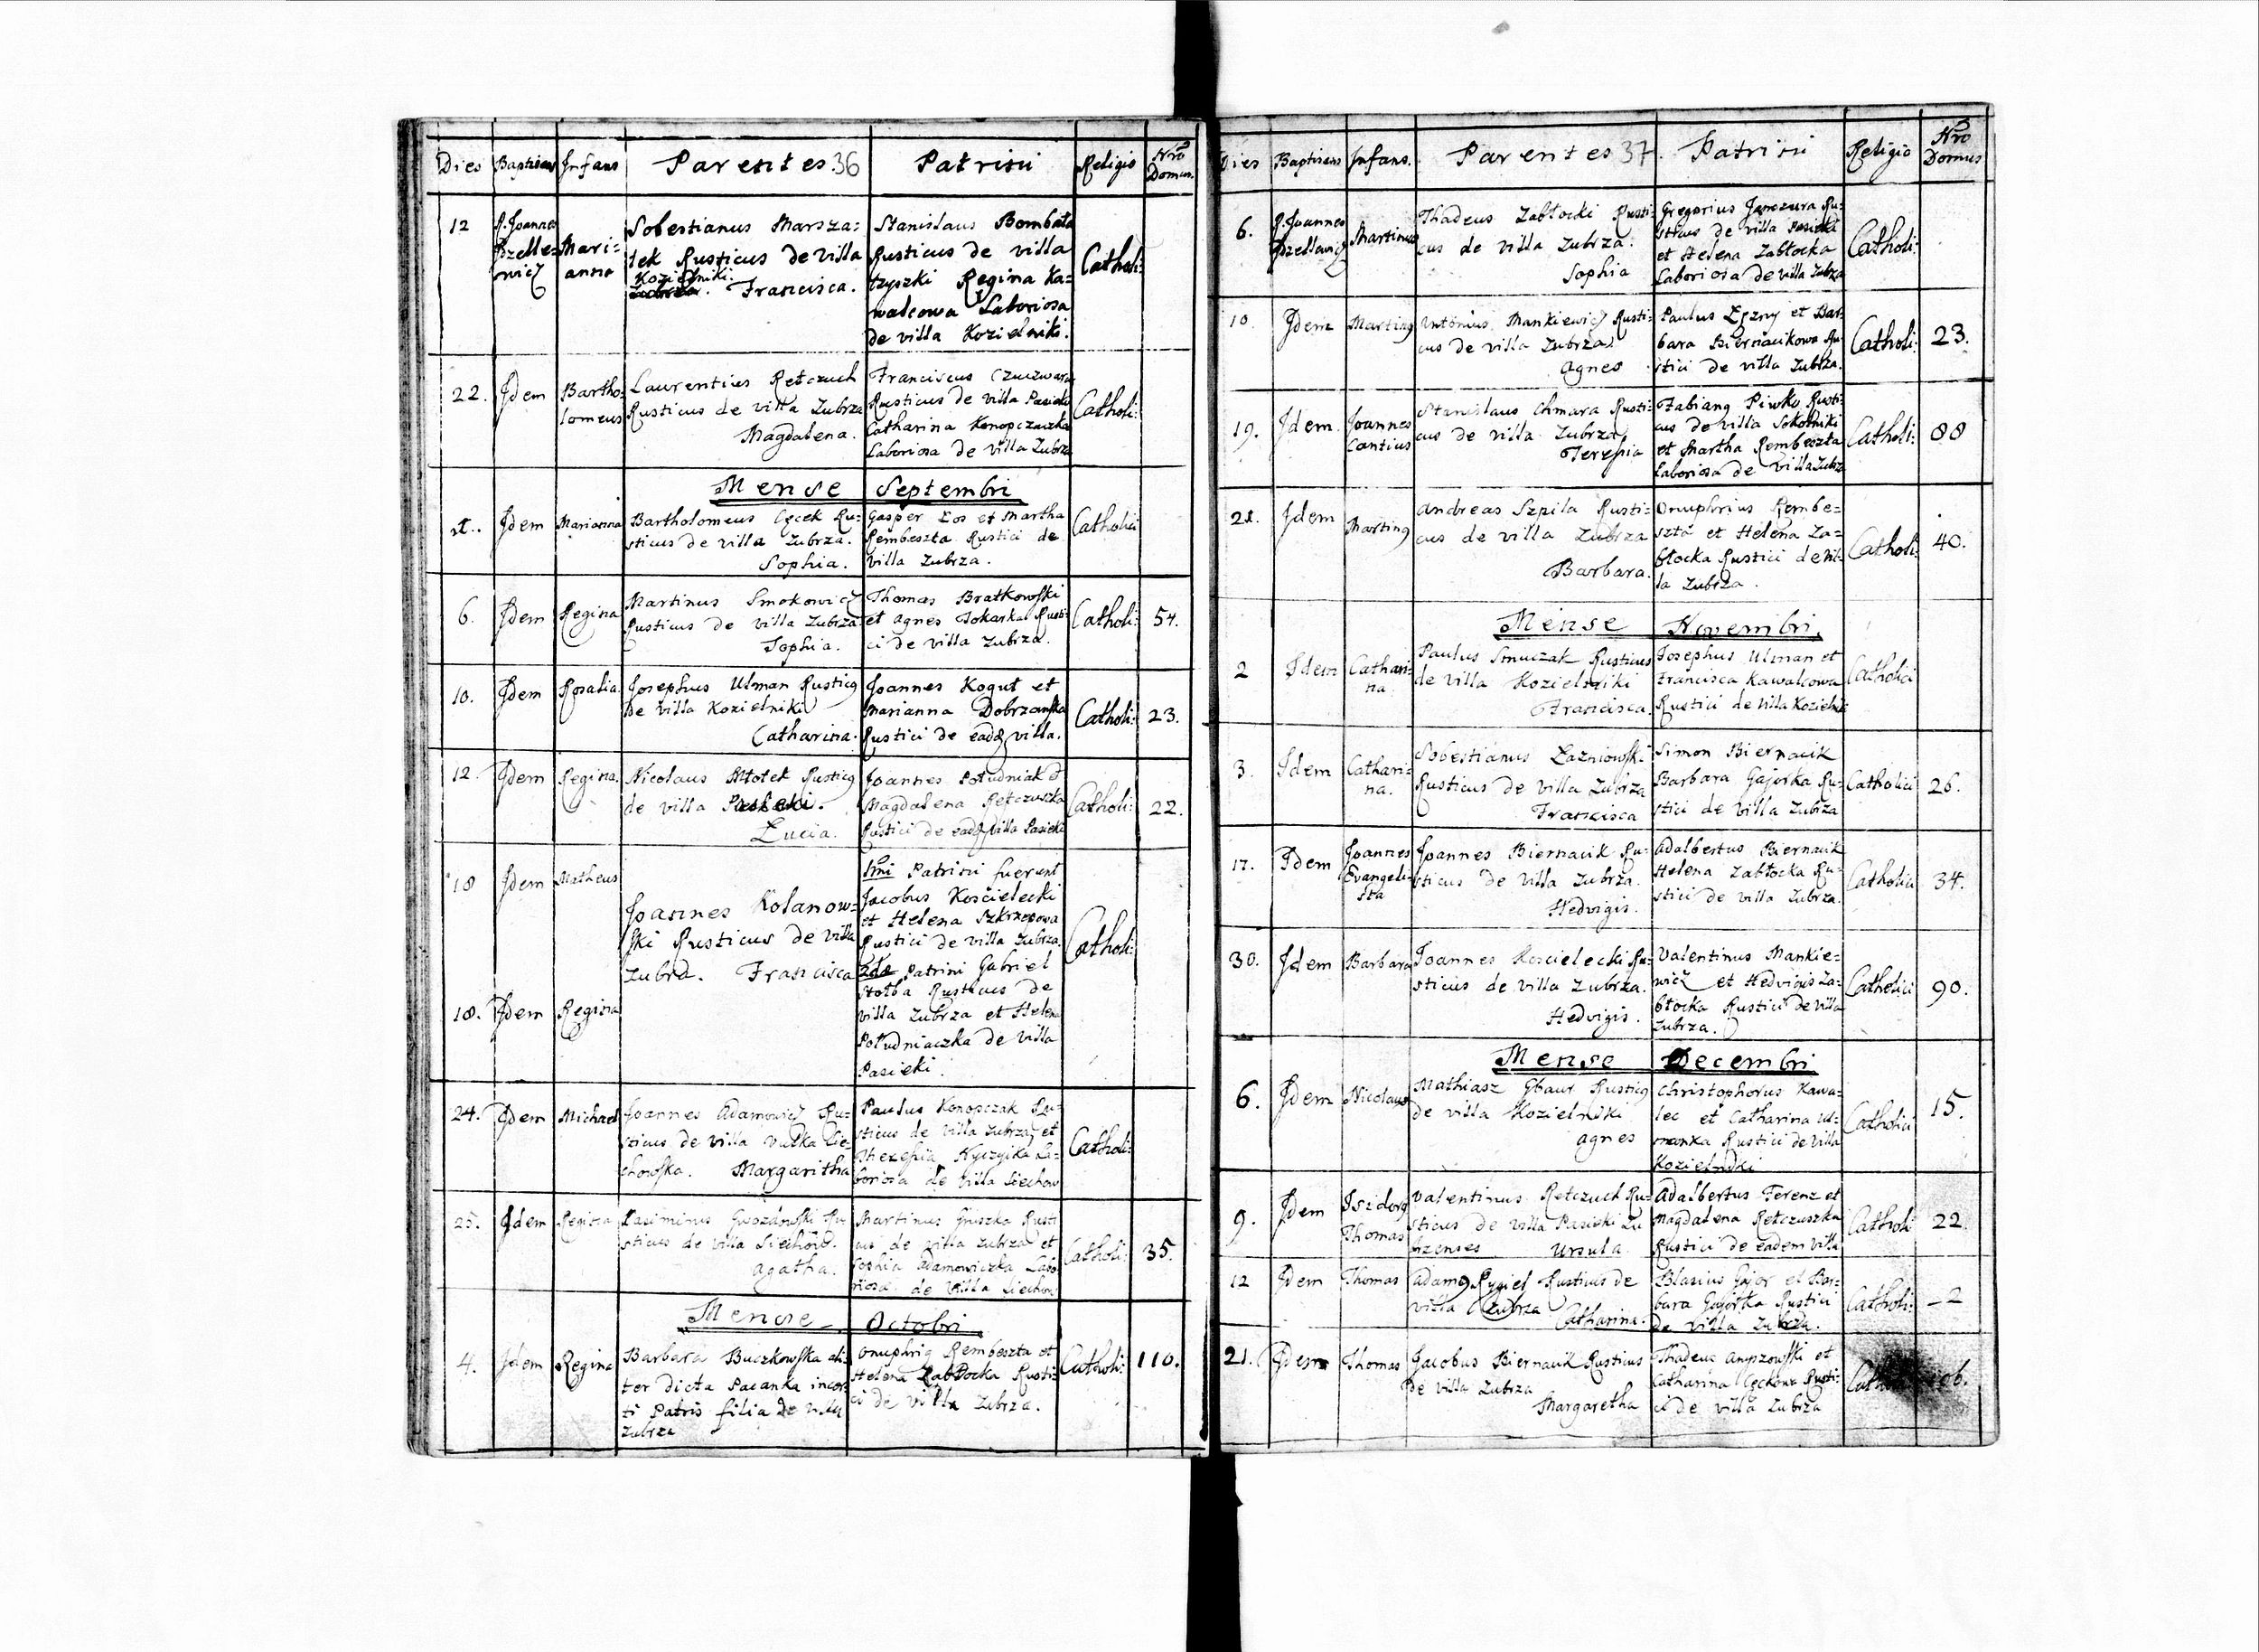 Dies Baptisans Infans Parentes 36 Patrini Religio Nro Domus.
12 R. Joannes Bzelle-
wicz
Mari-
anna
Sobestianus Marsza-
lek Rusticus de villa
Kozielniki.
Francisca.
Stanislaus Bombała
Rusticus de villa
Regina Ka-
walcowa Laboriosa
de villa Kozielniki.
Catholi:
22. Idem
Bartho-
lomeus
Laurentius Retczuch
Rusticus de villa Zubrza
Magdalena.
Franciscus
Rusticus de villa Pasieki
Catharina Konopczaczka
Laboriosa de villa Zubrza
Catholi:
Mense Septembri
1. Idem Marianna
Bartholomeus Cęcek Ru-
sticus de villa Zubrza.
Sophia.
Gasper Łos et Martha
Rembeszta Rustici de
villa Zubrza.
Catholici
6. Idem Regina
Martinus Smokowicz
Rusticus de villa Zubrza
Sophia.
Thomas Bratkowski
et Agnes Tokarka Rusti-
ci de villa Zubrza.
Catholi: 54.
10. Idem Rosalia
Josephus Ulman Rusticg
de villa Kozielniki
Catharina.
Joannes Kogut et
Marianna Dobrzanska
Rustici de eadg villa.
Catholi: 23.
12. Idem Regina.
Nicolaus Młotek Rusticg
de villa Pasieki.
Łucia.
Joannes Południak &
Magdalena Retczuszka
Rustici de eadg villa Pasieki
Catholi: 22.
18 Idem Matheus
18. Idem Regina
Joannes Kolanow-
ski Rusticus de villa
Zubrza. Francisca
1mi Patrini fuerunt
Jacobus Kościelecki
et Helena Szkrzesowa
Rustici de villa Zubrza.
2da Patrini Gabriel
Stołba Rusticus de
villa Zubrza et Helena
Południaczka de villa
Pasieki.
Catholi:
24. Idem Michael
Joannes Adamowicz Ru-
sticus de villa Vulka Sie-
chowska. Margaritha
Paulus Konopczak Ru-
sticus de villa Zubrza et
Theresia La-
boriosa de villa Siechow
Catholi:
25. Idem Regina
Casimirus Gwozdowski Ru-
sticus de villa Siechow.
Agatha.
Martinus Gruszka Rusti
cus de villa Zubrza et
Sophia Adamowiczka Labo-
riosa de villa Siechow
Catholi: 35.
Mense Octobri
4. Idem Regina
Barbara Buczkowska ali-
ter dicta Pacanka incer-
ti Patris filia de villa
Zubrza
Onuphrig Rembeszta et
Helena Zabłocka Rusti-
ci de villa Zubrza.
Catholi: 110.
Dies Baptisans Infans. Parentes 37. Patrini Religio Nro Domus
6. R. Joannes
Bzellewicz
Martinus
Thadeus Zabłocki Rusti-
cus de villa Zubrza.
Sophia
Gregorius Janczura Ru-
sticus de villa Pasieki
et Helena Zabłocka
Laboriosa de villa Zubrza
Catholi:
10. Idem Marting
Antonius Mankiewicz Rusti-
cus de villa Zubrza.
Agnes
Paulus Łęzny et Bar-
bara Biernacikowa Ru-
stici de villa Zubrza.
Catholi: 23.
19. Idem.
Joannes
Cantius
Stanislaus Chmara Rusti-
cus de villa Zubrza
Teresia
Fabiang Piwko Rusti-
cus de villa Sokolniki
et Martha Rembeszta
Laboriosa de villa Zubrza
Catholi: 88
21. Idem Marting
Andreas Szpila Rusti-
cus de villa Zubrza
Barbara.
Onuphrius Rembe-
szta et Helena Za-
błocka Rustici de vil-
la Zubrza.
Catholi: 40.
Mense Novembri.
2 Idem
Cathari-
na
Paulus Smuczak Rusticus
de villa Kozielniki
Francisca.
Josephus Ulman et
Francisca Kawalcowa
Rustici de villa Kozielnik
Catholici
3. Idem
Cathari-
na.
Sobestianus Łazniowski
Rusticus de villa Zubrza
Francisca
Simon Biernacik
Barbara Gajorka Ru-
stici de villa Zubrza
Catholici 26.
17. Idem
Joannes
Evangeli-
sta
Joannes Biernacik Ru-
sticus de villa Zubrza.
Hedvigis.
Adalbertus Biernacik
Helena Zabłocka Ru-
stici de villa Zubrza.
Catholici 34.
30. Idem Barbara
Joannes Koscielecki Ru-
sticus de villa Zubrza.
Hedvigis.
Valentinus Mankie-
wicz et Hedvigis Za-
błocka Rustici de villa
Zubrza.
Catholici 90.
Mense Decembri
6. Idem Nicolaus
Mathiasz Gbaur Rusticg
de villa Kozielniki
Agnes
Christophorus Kawa-
lec et Catharina Ul-
manka Rustici de villa
Kozielniki
Catholici 15.
9. Idem
Isidorg
Thomas
Valentinus Retczuch Ru-
sticus de villa Pasieki Zu
brzenses Ursula
Adalbertus Ferenz et
Magdalena Retczuszka
Rustici de eadem villa
Catholi 22.
12 Idem Thomas
Adamg Rygiel Rusticus de
villa Zubrza
Catharina.
Blasius Gajor et Bar-
bara Gajorka Rustici
de villa Zubrza.
Catholi: 2
21. Idem Thomas
Jacobus Biernacik Rusticus
de villa Zubrza
Margaretha
Thadeus et
Catharina Cęckowa Rusti-
ci de villa Zubrza